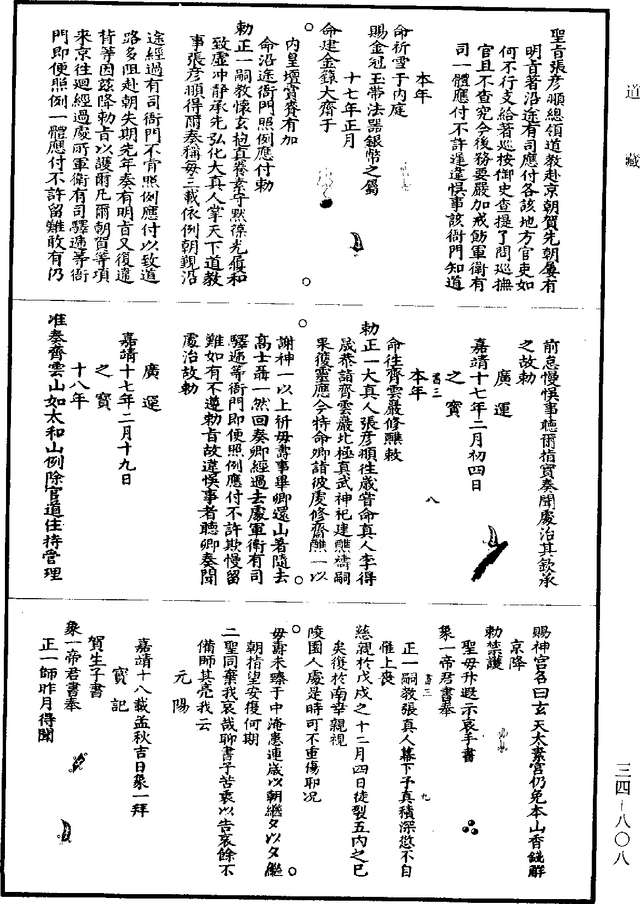 道藏
聖旨張彥頨總領道教赴京朝賀先朝屢有
明旨著沿途有司應付各該地方官吏如
何不行支給著巡按御史查提了問巡撫
官且不查究今後務要嚴加戒飭軍衛有
司一體應付不許遲違悞事該衙門知道
本年
命祈雪于內庭
賜金冠玉帶法器銀幣之屬
十七年正月
命建金籙大齋于
內皇壇賞賚有加
命沿途衙門照例應付勅
勅正一嗣教懷玄抱真養素守默葆光履和
致虛冲靜承先弘化大真人掌天下道教
事張彥頨得爾奏稱每三載依例朝覲沿
途經過有司衙門不肯照例應付以致道
路多阻赴朝失期先年奏有明旨又復違
背等因玆降勅旨以護爾凡爾朝賀等項
來京往迴經過處所軍衛有司驛遞等衙
門即便照例一體應付不許留難敢有仍
前怠慢悞事聽爾指實奏聞處治其欽承
之故勅
廣運
嘉靖十七年二月初四日
之寶
本年
命往齊雲巖修醮敕
勅正一大真人張彥頨往歲嘗命真人李得
晟恭詣齊雲巖北極真武神祀建醮禱嗣
果獲靈應今特命卿詣彼處修齋醮一以
謝神一以上祈母壽事畢卿還山著隨去
高士聶一然回奏卿經過去處軍衛有司
驛遞等衙門即便照例應付不許欺慢留
難如有不遵勅旨故違悞事者聽卿奏聞
處治故勅
廣運
嘉靖十七年二月十九日
之寶
十八年
准奏齊雲山如太和山例除官道住持管理
賜神宮名曰玄天太素宮仍免本山香錢解
京降
勅禁護
聖母升遐示哀手書
象一帝君書奉
正一嗣教張真人幕下予真積深慾不自
催上喪
慈親於戊戌之十二月四日徒裂五內之巳
矣復於南幸親視
陵園人處是時可不重傷耶况
母壽未臻于中淹患連歲以朝繼夕以夕繼
朝指望安復何期
二聖同棄我哀哉聊書予苦衷以告哀餘不
備師其亮我云
元陽
嘉靖十八載孟秋吉日象一拜
寶記
賀生子書
象一帝君書奉
正一師昨月得聞
三四—八〇八